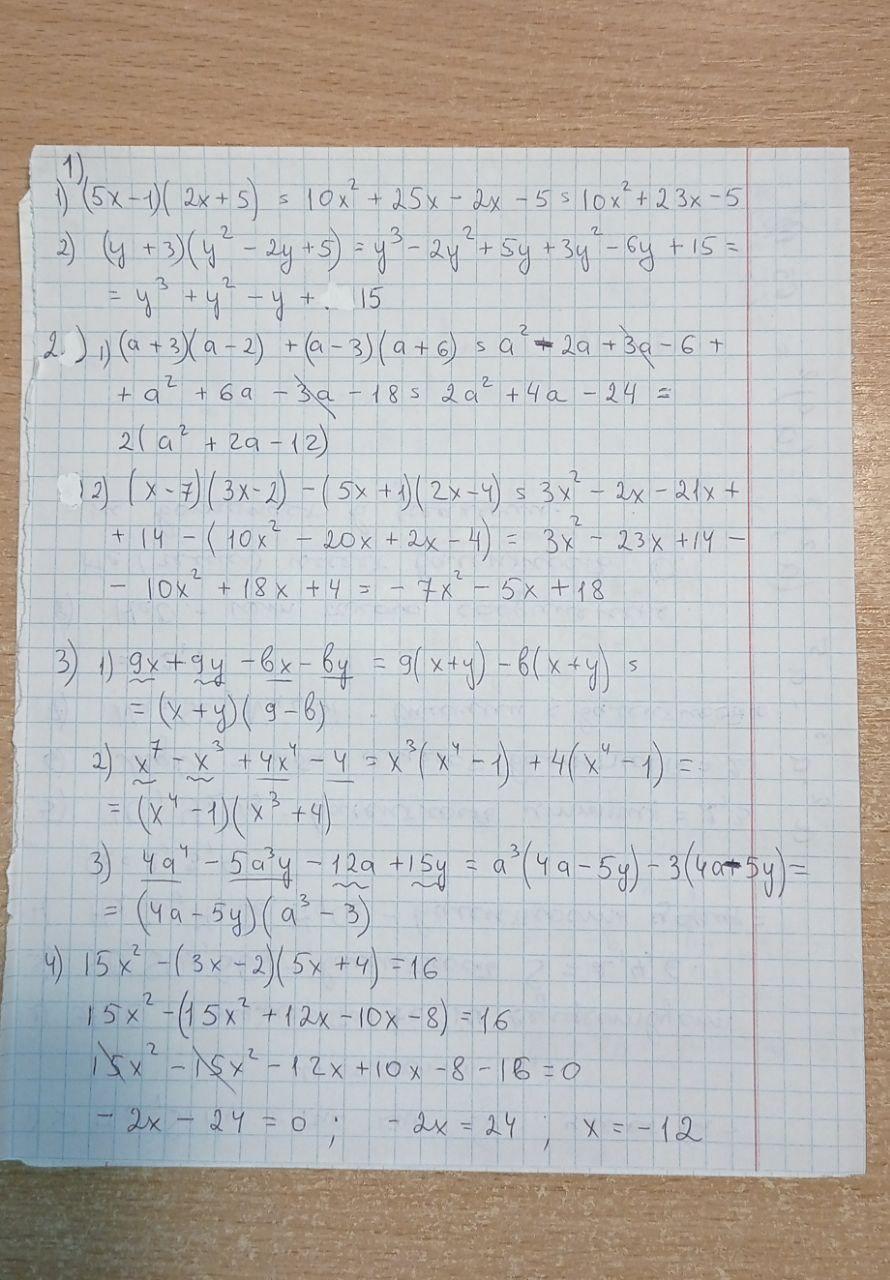 1)
1) (5x-1)(2x+5) = 10x² + 25x - 2x - 5 = 10x² + 23x - 5
2) (y+3)(y² - 2y + 5) = y³ - 2y² + 5y + 3y² - 6y + 15 =
= y³ + y² - y + 15
2.) 1) (a+3)(a-2) + (a-3)(a+6) = a² - 2a + 3a - 6 +
+ a² + 6a - 3a - 18 = 2a² + 4a - 24 =
2(a² + 2a - 12)
2) (x-7)(3x-2) - (5x+1)(2x-4) = 3x² - 2x - 21x +
+ 14 - (10x² - 20x + 2x - 4) = 3x² - 23x + 14 -
- 10x² + 18x + 4 = - 7x² - 5x + 18
3) 1) 9x + 9y - bx - by = 9(x+y) - b(x+y) =
= (x+y)(9-b)
2) x⁷ - x³ + 4x⁴ - 4 = x³(x⁴-1) + 4(x⁴-1) =
= (x⁴-1)(x³+4)
3) 4a⁴ - 5a³y - 12a + 15y = a³(4a-5y) - 3(4a-5y) =
= (4a-5y)(a³-3)
4) 15x² - (3x-2)(5x+4) = 16
15x² - (15x² + 12x - 10x - 8) = 16
15x² - 15x² - 12x + 10x - 8 - 16 = 0
- 2x - 24 = 0 ; - 2x = 24 ; x = -12